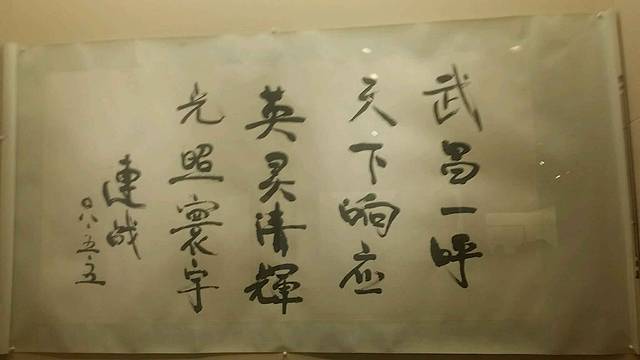 武昌一呼
天下响应
英灵清輝
光照寰宇
連战
〇六.五.五